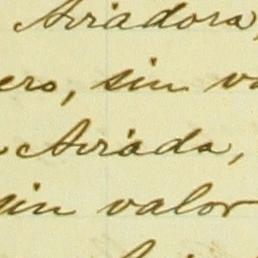 Aviadora,
ero, sin va
Aviada,
sin valor